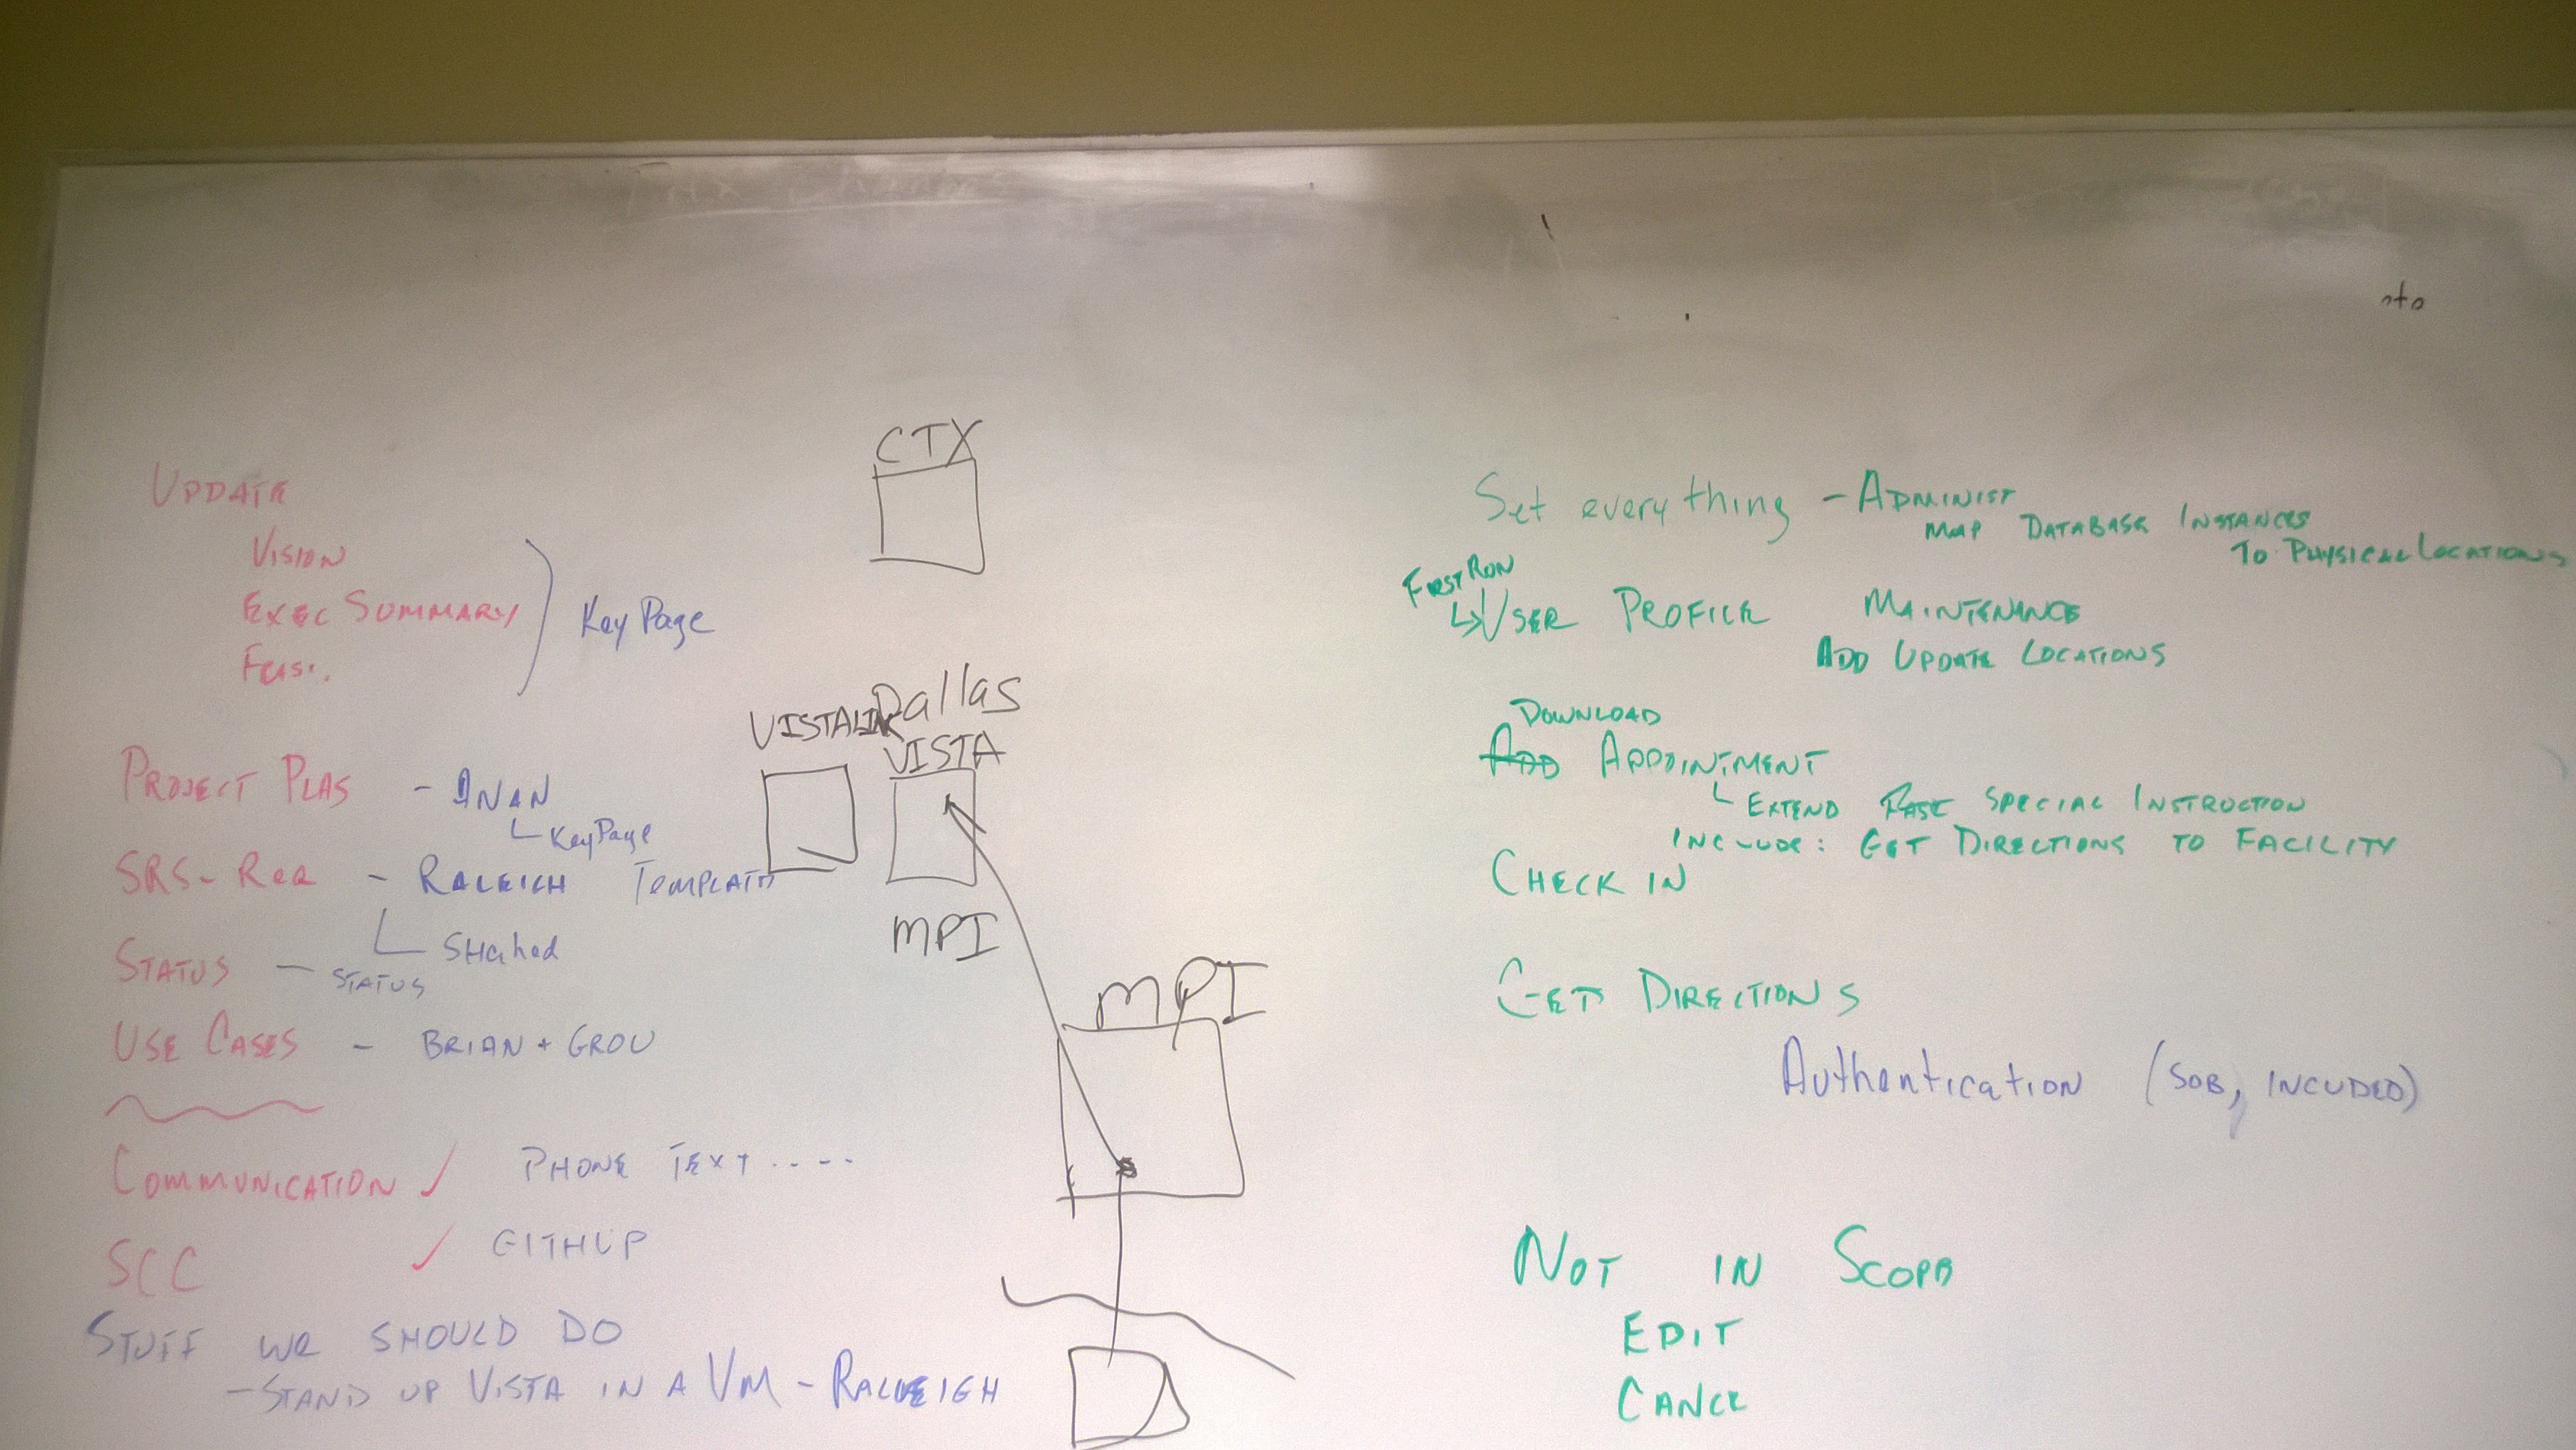 nto
UPDATE
VISION
EXEC SUMMARY
FEAS.
KeyPage
PROJECT PLAS - ANAN
KeyPage
SRS-REQ - RALEIGH TEMPLATE
SHahed
STATUS - STATUS
USE CASES - BRIAN + GROU
COMMUNICATION ✓ PHONE TEXT ....
SCC ✓ GITHUP
STUFF WE SHOULD DO
-STAND UP VISTA IN A VM - RALEIGH
CTX
VISTALINK
Dallas
VISTA
MPI
MPI
Set everything - ADMINIST
MAP DATABASE INSTANCES
TO PHYSICAL LOCATIONS
FIRST RUN
USER PROFILE MAINTENANCE
ADD UPDATE LOCATIONS
DOWNLOAD
ADD APPOINTMENT
EXTEND SPECIAL INSTRUCTION
INCLUDE: GET DIRECTIONS TO FACILITY
CHECK IN
GET DIRECTIONS
Authentication (SOB, INCUDED)
NOT IN SCOPE
EDIT
CANCE